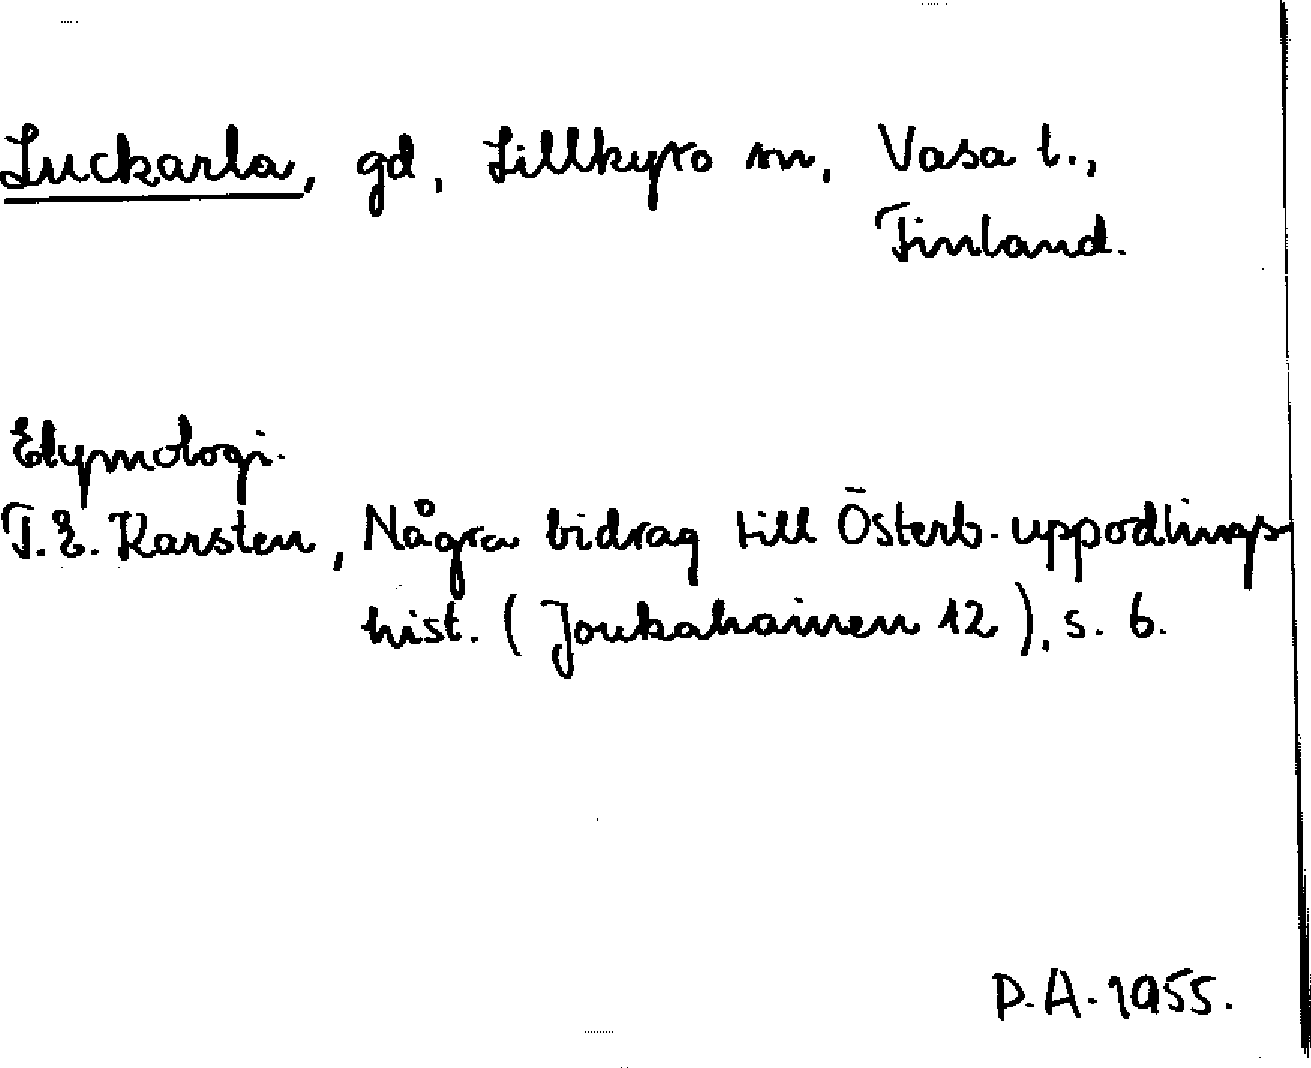 Luckarla, gd, Lillkyro sn, Vasa l.,
Finland.
Etymologi.
T. E. Karsten, Några bidrag till Österb. uppodlings-
hist. (Joukahainen 12), s. 6.
P.A. 1955.